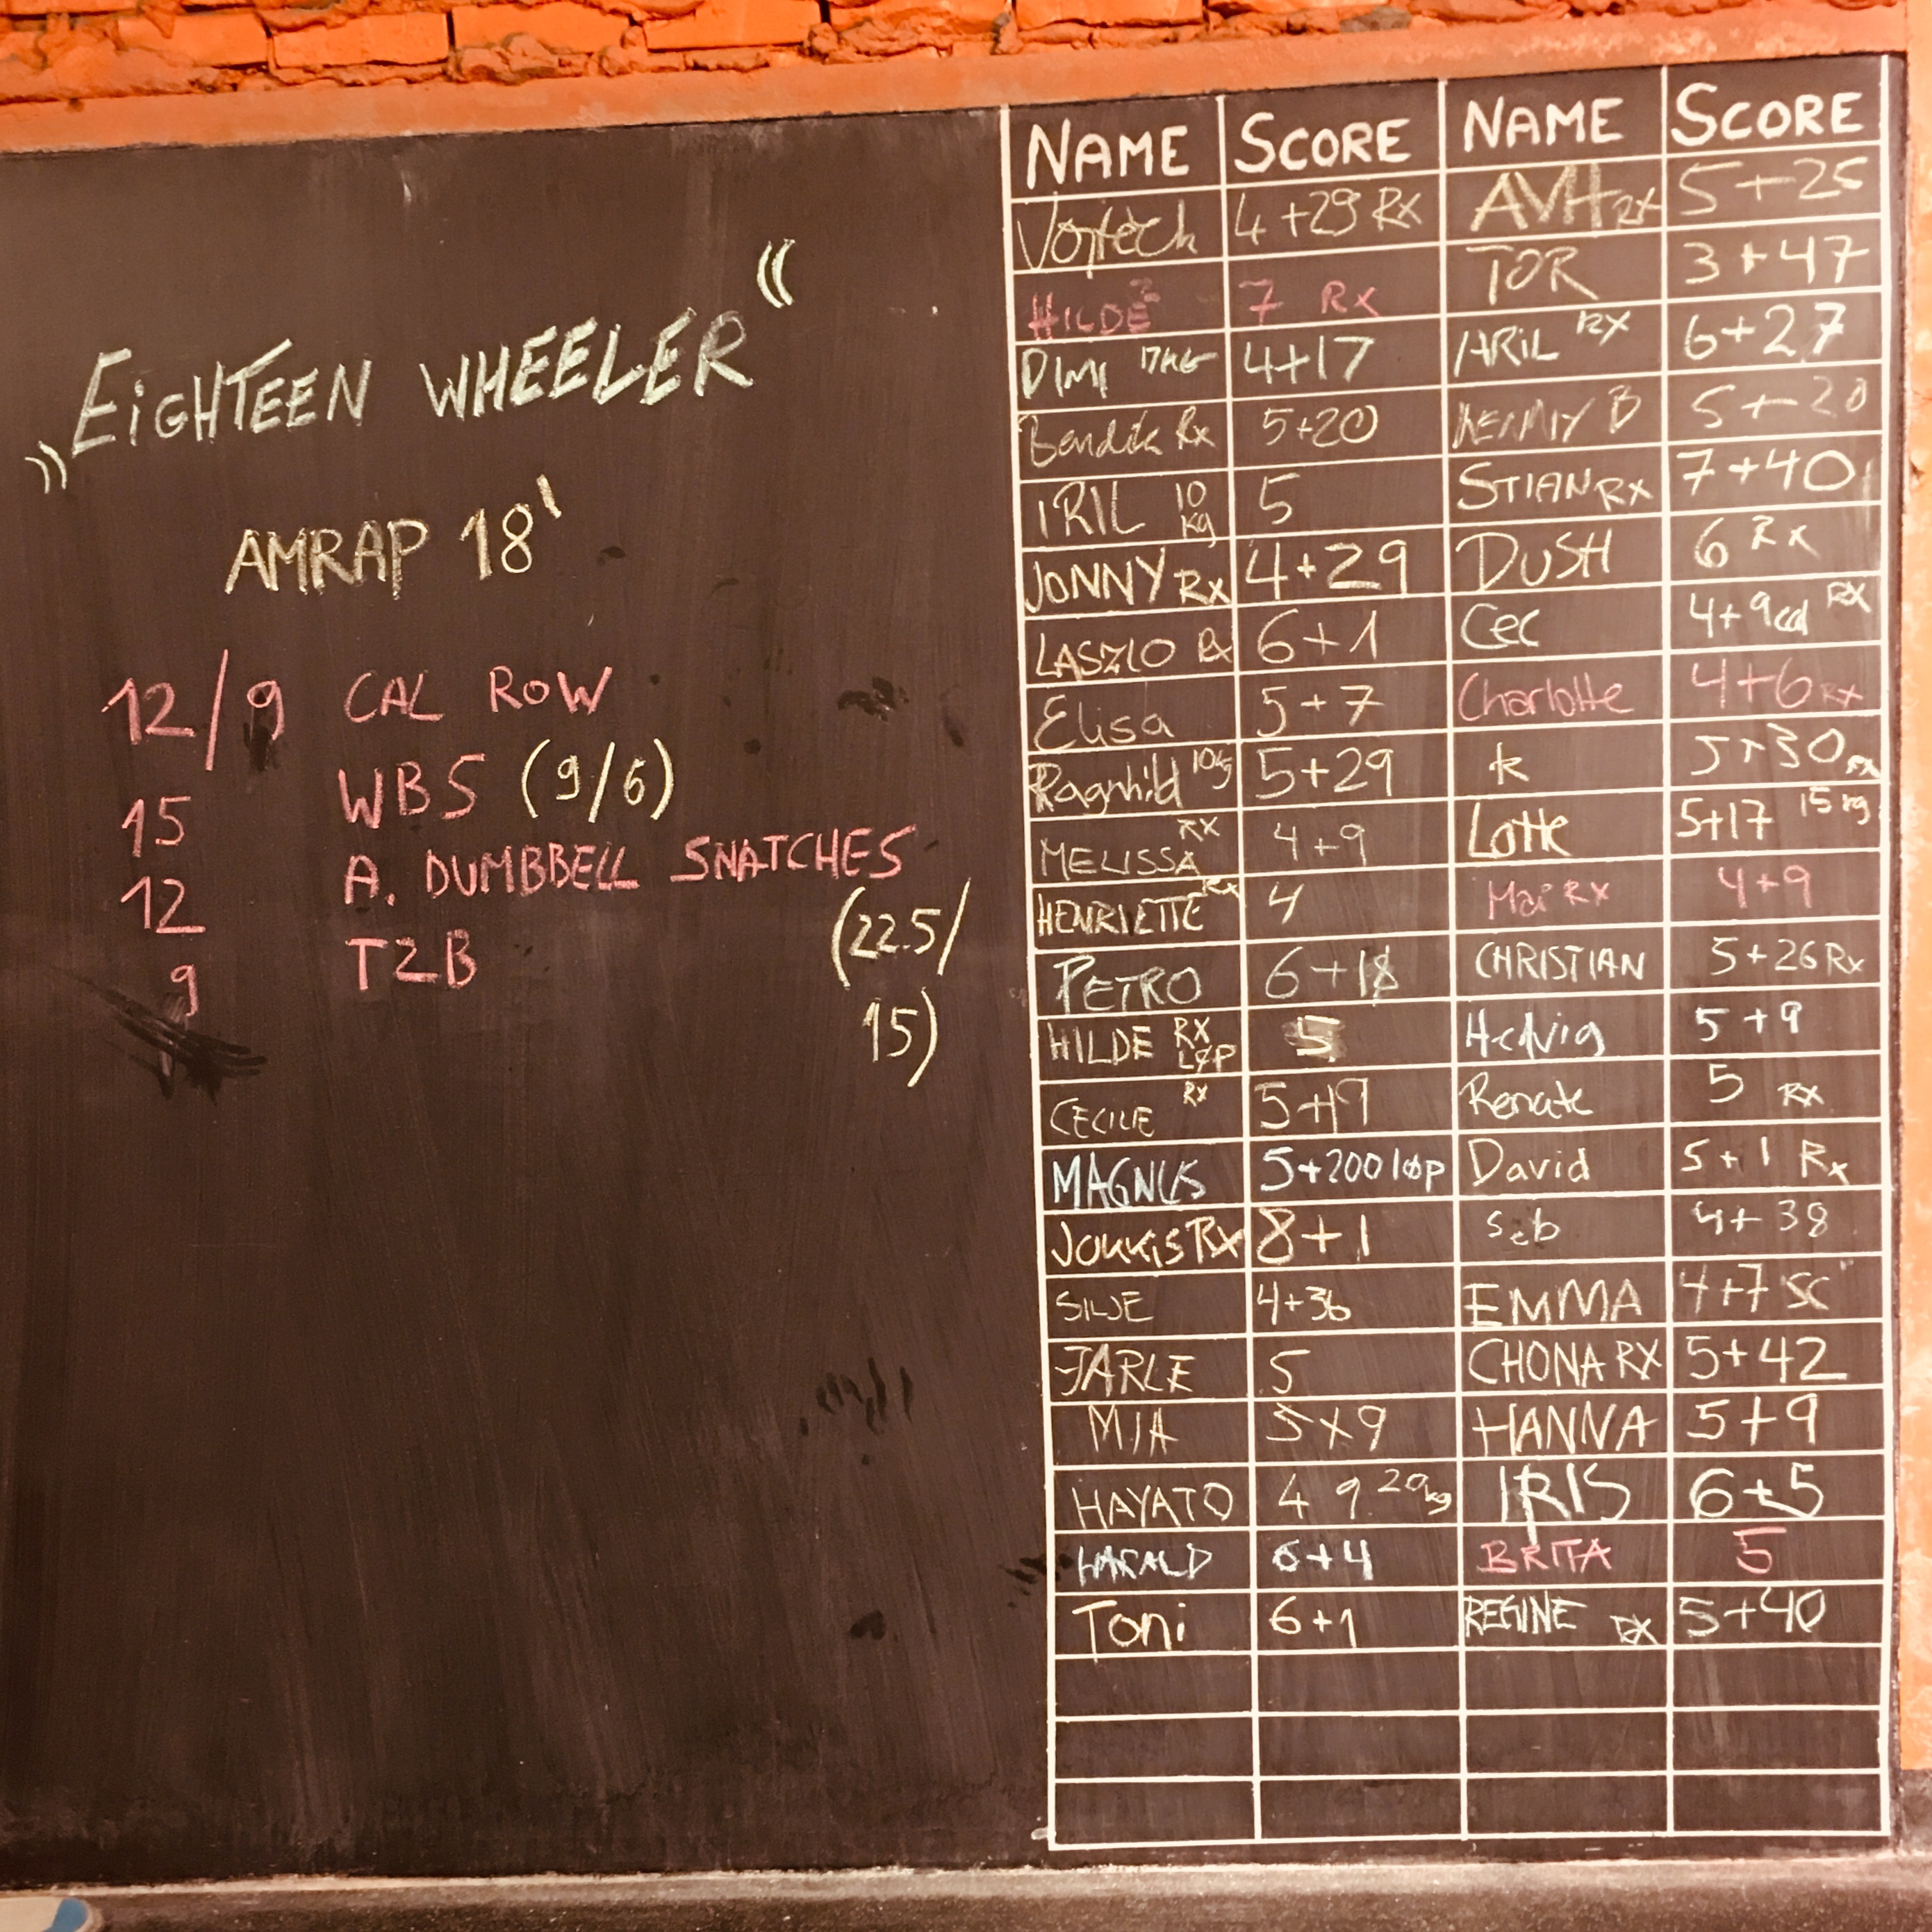 „EIGHTEEN WHEELER“
AMRAP 18'
12/9 CAL ROW
15 WBS (9/6)
12 A. DUMBBELL SNATCHES
(22.5/
15)
9 T2B
NAME SCORE NAME SCORE
Vojtech 4+29 Rx AVH RX 5+25
HILDE 7 Rx TOR 3+47
DIMI 17KG 4+17 ARIL RX 6+27
Bendik Rx 5+20 B 5+20
IRIL 10 kg 5 STIAN RX 7+40
JONNY Rx 4+29 DUSH 6 Rx
LASZLO Rx 6+1 Cec 4+9cal RX
Elisa 5+7 Charlotte 4+6 RX
Ragnhild 10kg 5+29 k 5+30 RX
MELISSA RX 4+9 Lotte 5+17 15kg
HENRIETTE Rx 4 Mai RX 4+9
PETRO 6+18 CHRISTIAN 5+26 Rx
HILDE RX LØP 5 Hedvig 5+9
CECILIE RX 5+19 Renate 5 RX
MAGNUS 5+200 løp David 5+1 Rx
JOKKIS RX 8+1 Seb 4+38
SILJE 4+36 EMMA 4+7 SC
JARLE 5 CHONA RX 5+42
MIA 5x9 HANNA 5+9
HAYATO 4 9 20kg IRIS 6+5
HARALD 6+4 BRITA 5
Toni 6+1 REGINE RX 5+40